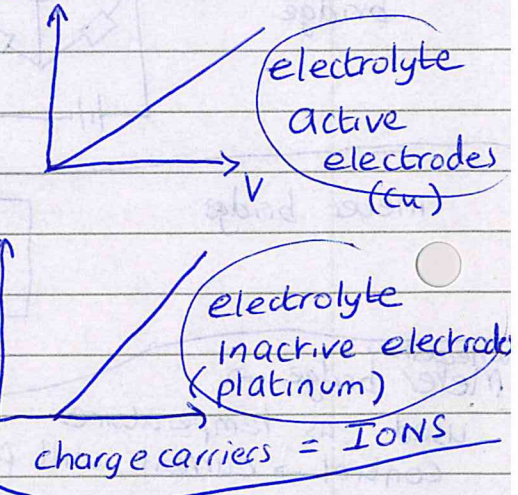 electrolyte
active
electrodes
(Cu)
V
electrolyte
inactive electrode
(platinum)
charge carriers = IONS